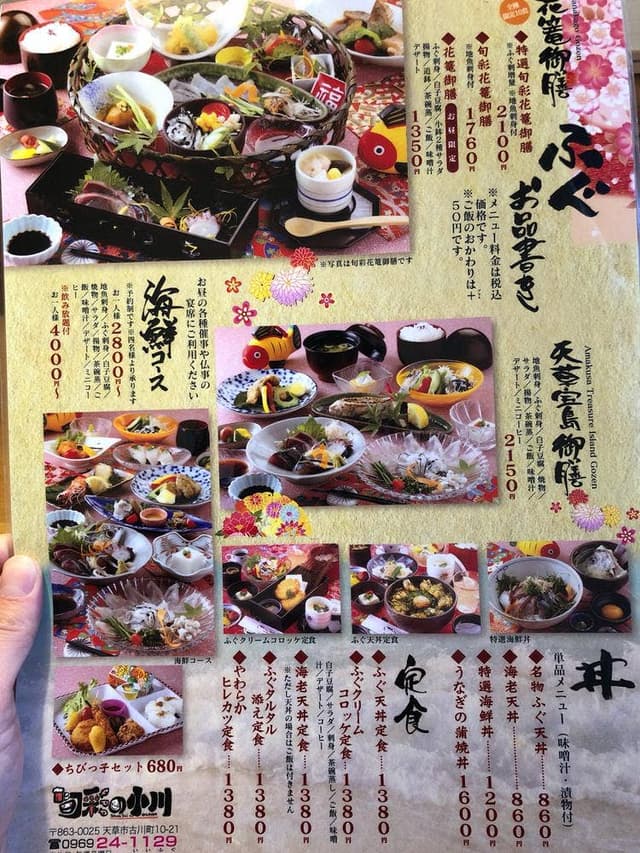 花篭御膳
全種限定10食
◆特選旬彩花篭御膳
※ふぐ刺増量 ※地魚刺身付
2100円
◆旬彩花篭御膳
※地魚刺身付
1760円
◆花篭御膳 お昼限定
ふぐ刺身/白子豆腐/小鉢2種サラダ
揚物/追鉢/茶碗蒸/ご飯/味噌汁
デザート
1350円
福
ふぐ
お品書き
※メニュー料金は税込
価格です。
※ご飯のおかわりは+
50円です。
※写真は旬彩花篭御膳です
海鮮コース
お昼の各種催事や仏事の
宴席にご利用ください
※予約制です※四名様より承ります
お一人様2800円~
地魚刺身/ふぐ刺身/白子豆腐/
焼物/サラダ/揚物/茶碗蒸/ご
飯/味噌汁/デザート/ミニコー
ヒー
※飲み放題付
お一人様4000円~
天草宝島御膳
Amakusa Treasure Island Gozen
地魚刺身/ふぐ刺身/白子豆腐/焼物/
サラダ/揚物/茶碗蒸/ご飯/味噌汁/
デザート/ミニコーヒー
2150円
海鮮コース
ふぐクリームコロッケ定食
ふぐ天丼定食
特選海鮮丼
丼
単品メニュー(味噌汁・漬物付)
◆名物ふぐ天丼……860円
◆海老天丼……860円
◆特選海鮮丼……1200円
◆うなぎの蒲焼丼 1600円
定食
◆ふぐ天丼定食……1380円
◆ふぐクリーム
コロッケ定食……1380円
白子豆腐/サラダ/刺身/茶碗蒸し/ご飯/味噌
汁/デザート/コーヒー
◆海老天丼定食……1380円
※ただし天丼の場合はご飯は付きません
◆ふぐタルタル
添え定食……1380円
◆やわらか
ヒレカツ定食…1380円
◆ちびっ子セット 680円
旬彩の小川
〒863-0025 天草市古川町10-21
☎0969 24-1129